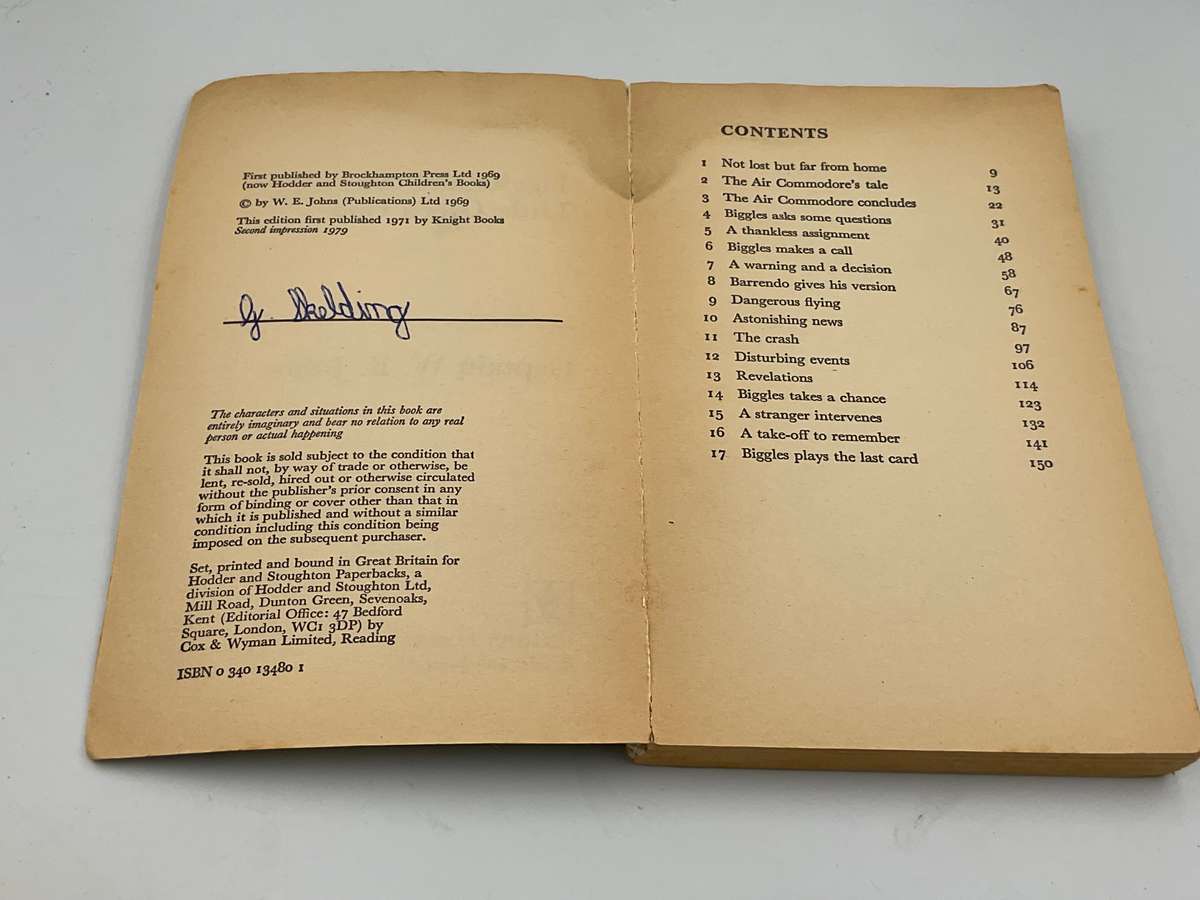 First published by Brockhampton Press Ltd 1969
(now Hodder and Stoughton Children's Books)
© by W. E. Johns (Publications) Ltd 1969
This edition first published 1971 by Knight Books
Second impression 1979
G. Skelding
The characters and situations in this book are
entirely imaginary and bear no relation to any real
person or actual happening
This book is sold subject to the condition that
it shall not, by way of trade or otherwise, be
lent, re-sold, hired out or otherwise circulated
without the publisher's prior consent in any
form of binding or cover other than that in
which it is published and without a similar
condition including this condition being
imposed on the subsequent purchaser.
Set, printed and bound in Great Britain for
Hodder and Stoughton Paperbacks, a
division of Hodder and Stoughton Ltd,
Mill Road, Dunton Green, Sevenoaks,
Kent (Editorial Office: 47 Bedford
Square, London, WC1 3DP) by
Cox & Wyman Limited, Reading
ISBN 0 340 13480 1
CONTENTS
1 Not lost but far from home 9
2 The Air Commodore's tale 13
3 The Air Commodore concludes 22
4 Biggles asks some questions 31
5 A thankless assignment 40
6 Biggles makes a call 48
7 A warning and a decision 58
8 Barrendo gives his version 67
9 Dangerous flying 76
10 Astonishing news 87
11 The crash 97
12 Disturbing events 106
13 Revelations 114
14 Biggles takes a chance 123
15 A stranger intervenes 132
16 A take-off to remember 141
17 Biggles plays the last card 150